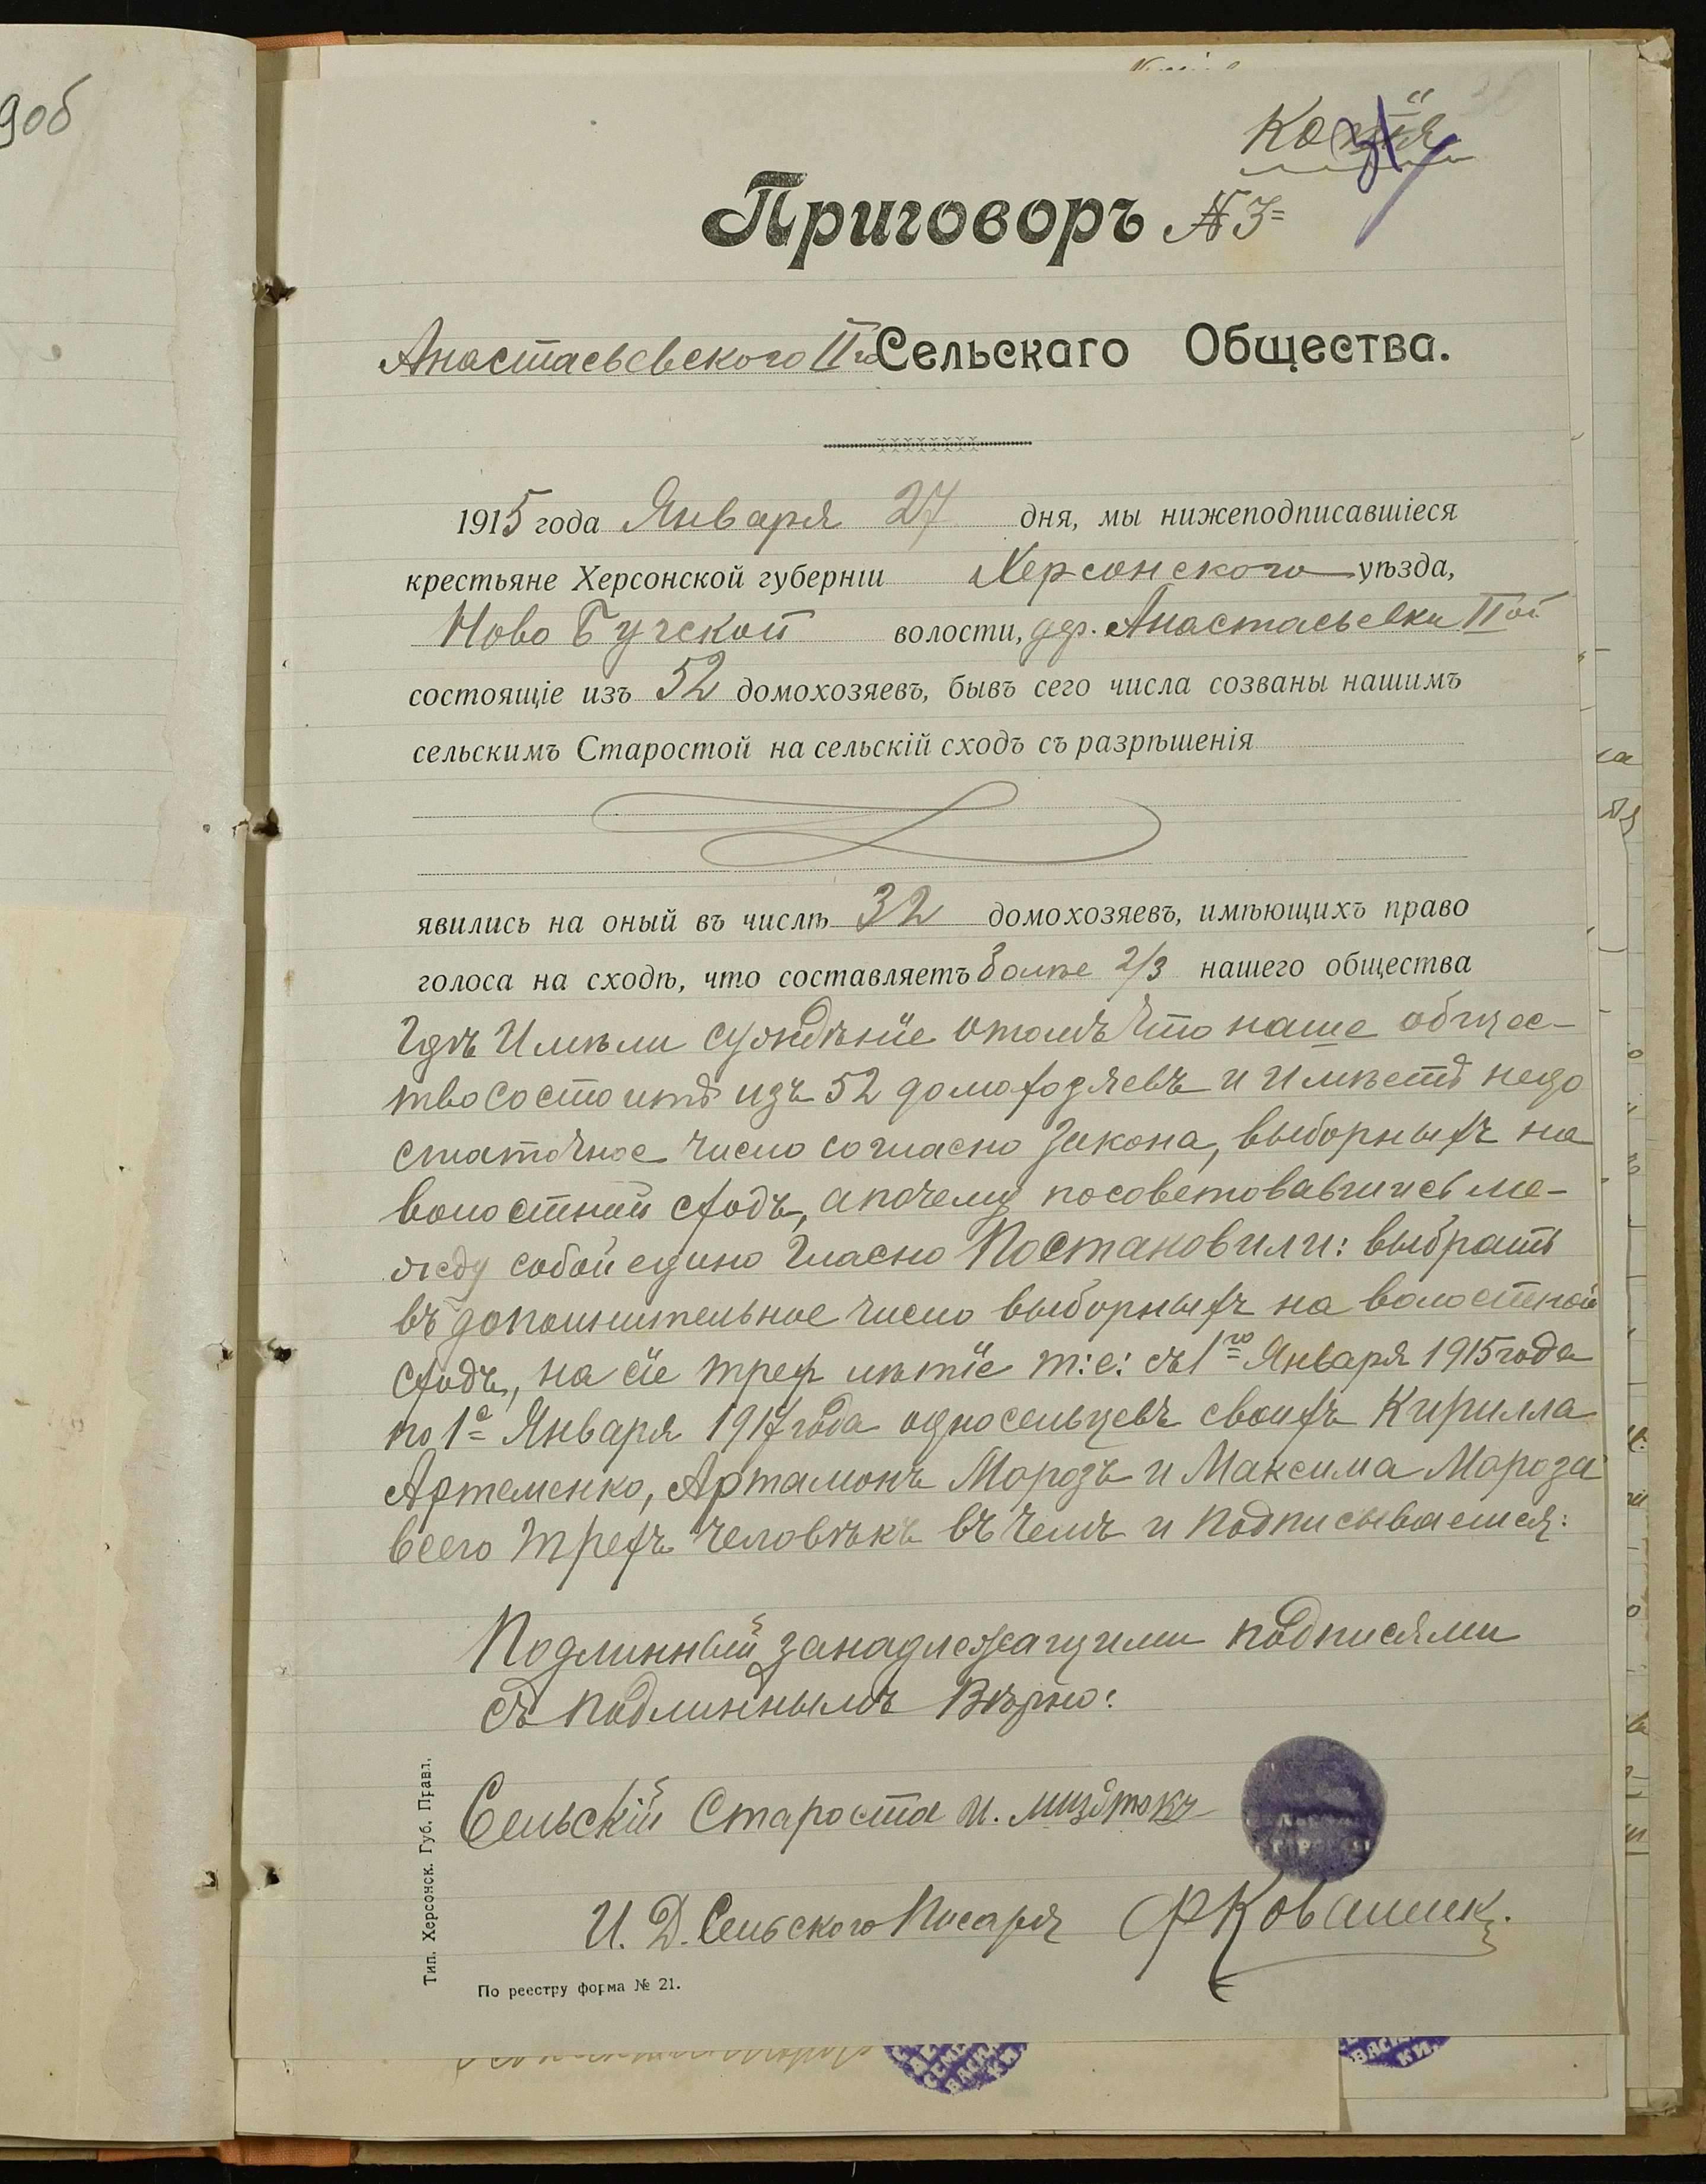 90б
Копія
31
Приговоръ № 3=
Анастасьевского II го Сельскаго Общества.
1915 года Января 27 дня, мы нижеподписавшіеся
крестьяне Херсонской губерніи Херсонского уѣзда,
Ново Бугской волости, дер. Анастасьевки II ой
состоящіе изъ 52 домохозяевъ, бывъ сего числа созваны нашимъ
сельскимъ Старостой на сельскій сходъ съ разрѣшенія
явились на оный въ числѣ 32 домохозяевъ, имѣющихъ право
голоса на сходѣ, что составляетъ болѣе 2/3 нашего общества
Гдѣ Имѣли сужденіе отомъ что наше общес-
тво состоитъ изъ 52 домохозяевъ и Имѣетъ недо
статочное число согласно Закона, выборныхъ на
волостной сходъ, а почему посоветовавшись ме-
жду собой едино гласно Постановили: выбрать
въ дополнительное число выборныхъ на волостной
сходъ, на сіе трех лѣтіе т:е: съ 1го Января 1915 года
по 1е Января 1917 года односельцевъ своихъ Кирилла
Артеменко, Артамонъ Морозъ и Максима Мороза
всего трехъ человѣкъ въ чемъ и подписываемся:
Подлинный занадлежащими подписями
съ подлиннымъ Вѣрно:
Сельскій Староста И.
И. Д. Сельского Писаря
Тип. Херсонск. Губ. Правл.
По реестру форма № 21.